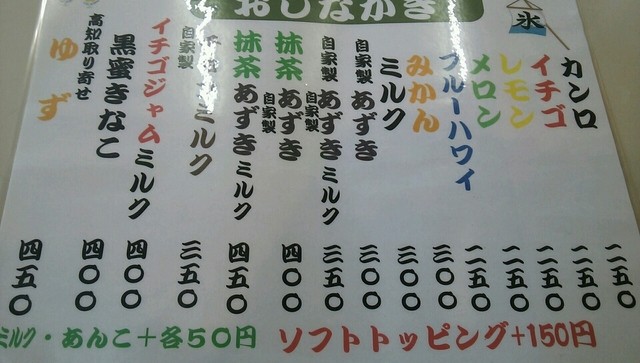 おしながき
氷
カンロ 二五〇
イチゴ 二五〇
レモン 二五〇
メロン 二五〇
ブルーハワイ 二五〇
みかん 三〇〇
ミルク 三〇〇
自家製 あずき 三〇〇
自家製 あずきミルク 三五〇
抹茶 自家製 あずき 四〇〇
抹茶 自家製 あずきミルク 四五〇
自家製 ミルク 三五〇
イチゴジャムミルク 四〇〇
黒蜜きなこ 四〇〇
高知取り寄せ ゆず 四五〇
ミルク・あんこ+各50円 ソフトトッピング+150円